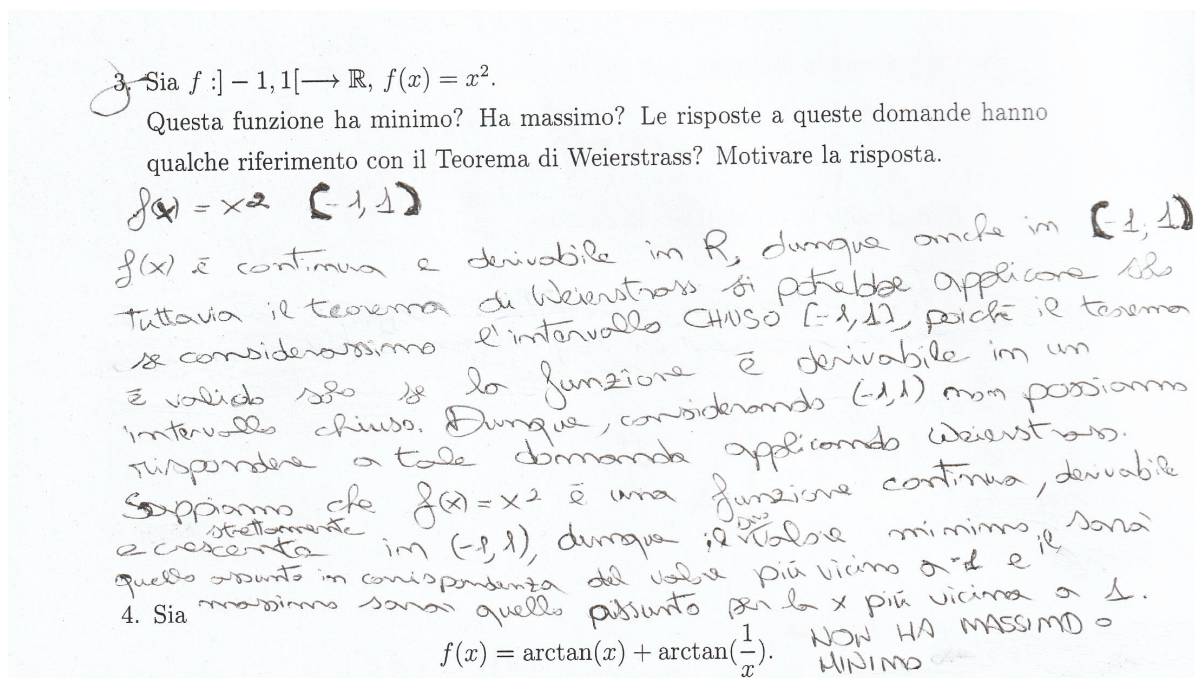 3. Sia f :] − 1, 1[⟶ ℝ, f(x) = x².
Questa funzione ha minimo? Ha massimo? Le risposte a queste domande hanno
qualche riferimento con il Teorema di Weierstrass? Motivare la risposta.
f(x) = x² (-1, 1)
f(x) è continua e derivabile in R, dunque anche in (-1, 1)
tuttavia il teorema di Weierstrass si potrebbe applicare solo
se considerassimo l'intervallo CHIUSO [-1, 1], poiché il teorema
è valido solo se la funzione è derivabile in un
intervallo chiuso. Dunque, considerando (-1, 1) non possiamo
rispondere a tale domanda applicando Weierstrass.
Sappiamo che f(x) = x² è una funzione continua, derivabile
e strettamente crescente in (-1, 1), dunque il suo valore minimo sarà
quello assunto in corrispondenza del valore più vicino a -1 e il
massimo sarà quello assunto per la x più vicina a 1.
NON HA MASSIMO o
MINIMO
4. Sia
f(x) = arctan(x) + arctan(1/x).